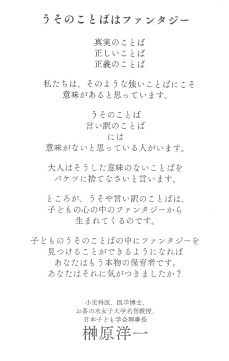 うそのことばはファンタジー
真実のことば
正しいことば
正義のことば
私たちは、そのような強いことばにこそ
意味があると思っています。
うそのことば
言い訳のことば
には
意味がないと思っている人がいます。
大人はそうした意味のないことばを
バケツに捨てなさいと言います。
ところが、うそや言い訳のことばは、
子どもの心の中のファンタジーから
生まれてくるのです。
子どものうそのことばの中にファンタジーを
見つけることができるようになれば
あなたはもう本物の保育者です。
あなたはそれに気がつきましたか？
小児科医、医学博士、
お茶の水女子大学名誉教授、
日本子ども学会理事長
榊原洋一